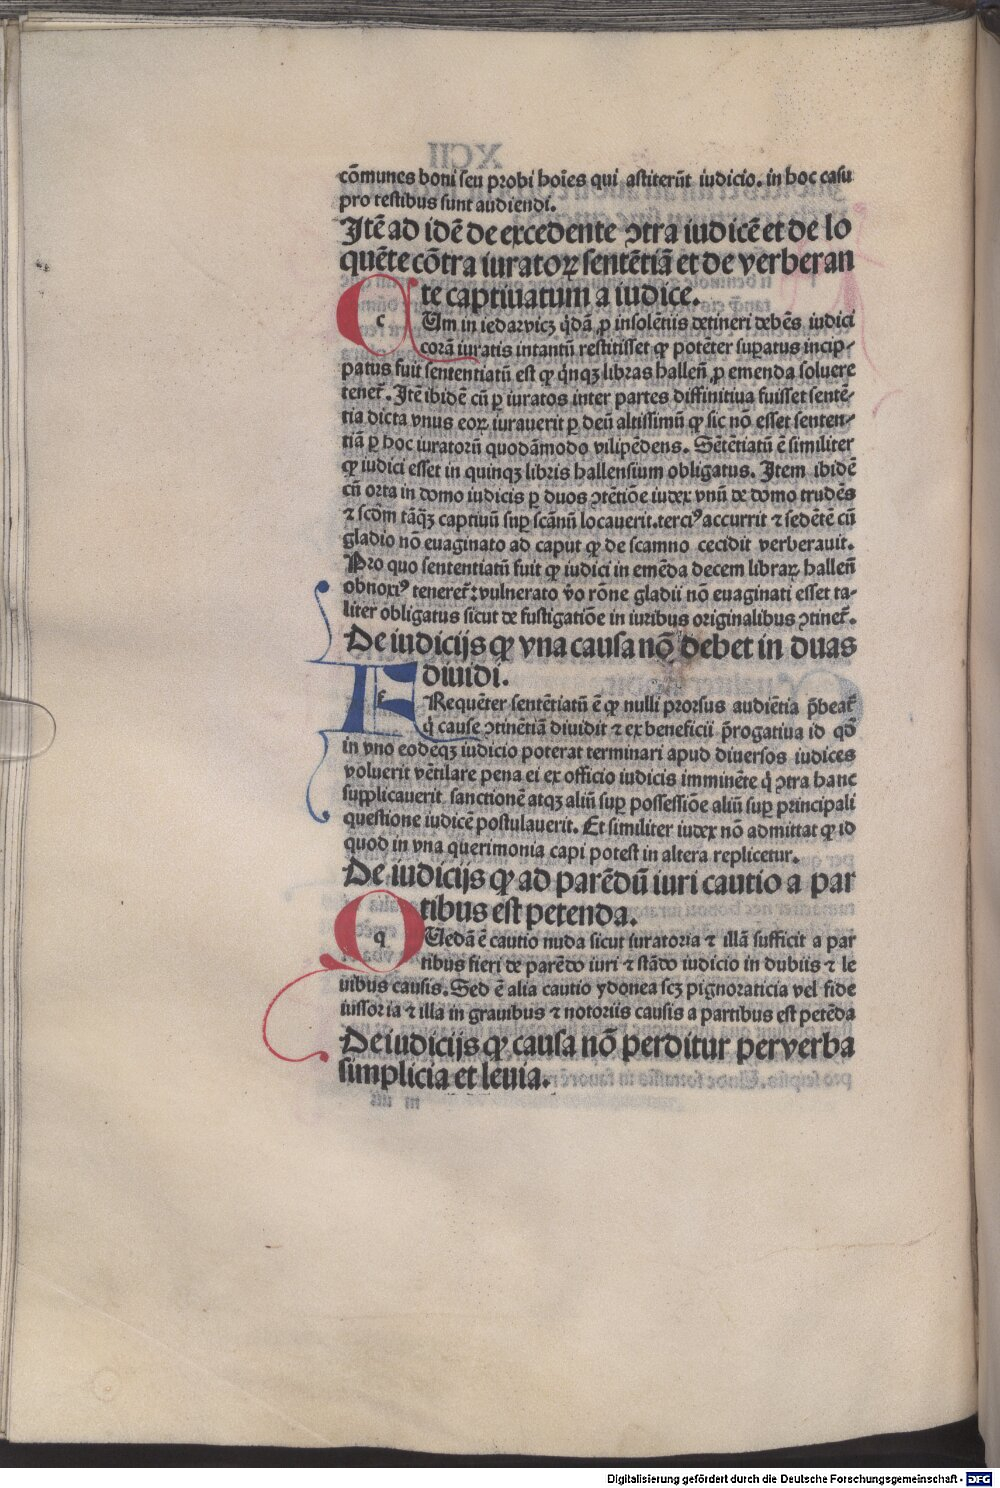 cōmunes boni seu probi hoīes qui astiterūt iudicio. in hoc casu
pro testibus sunt audiendi.
Itē ad idē de excedente ↄtra iudicē et de lo
quēte cōtra iuratoꝝ sentētiā et de verberan
te captiuatum a iudice.
CUm in iedarvicz q̄dā ꝑ insolenus detineri debēs iudici
corā iuratis intantū restitisset ꝙ potēter suꝑatus incip-
patus fuit sententiatū est ꝙ q̄nqꝫ libras hallēn̄ ꝑ emenda soluere
tenet᷑. Itē ibidē cū ꝑ iuratos inter partes diffinitiua fuisset sentē-
tia dicta vnus eoꝝ iurauerit ꝑ deū altissimū ꝙ sic nō esset senten-
tiā ꝑ hoc iuratorū quodāmodo vilipēdens. Sētētiatū ē similiter
ꝙ iudici esset in quinqꝫ libris hallensium obligatus. Item ibidē
cū orta in domo iudicis ꝑ duos ↄtētiōe iudex vnū de domo trudēs
⁊ scdm tāqꝫ captiuū suꝑ scānū locauerit. terciꝰ accurrit ⁊ sedētē cū
gladio nō euaginato ad caput ꝙ de scamno cecidit verberauit.
Pro quo sententiatū fuit ꝙ iudici in emēda decem libraꝝ hallen̄
obnoxiꝰ teneret᷑: vulnerato v̄o rōne gladii nō euaginati esset ta-
liter obligatus sicut de fustigatiōe in iuribus originalibus ↄtinet᷑.
De iudicijs ꝙ vna causa nō debet in duas
diuidi.
FRequēter sentētiatū ē ꝙ nulli prorsus audiētia p̄beat᷑
q̇ cause ↄtinētiā diuidit ⁊ ex beneficii p̄rogatiua id qd̄
in vno eodeqꝫ iudicio poterat terminari apud diuersos iudices
voluerit vētilare pena ei ex officio iudicis imminēte q̇ ↄtra hanc
supplicauerit sanctionē atqꝫ aliū suꝑ possessiōe aliū suꝑ principali
questione iudicē postulauerit. Et similiter iudex nō admittat ꝙ id
quod in vna querimonia capi potest in altera replicetur.
De iudicijs ꝙ ad parēdū iuri cautio a par
tibus est petenda.
QUedā ē cautio nuda sicut iuratoria ⁊ illā sufficit a par
tibus fieri de parēdo iuri ⁊ stādo iudicio in dubiis ⁊ le
uibus causis. Sed ē alia cautio ydonea scꝫ pignoraticia vel fide
iussoria ⁊ illa in grauibus ⁊ notoriis causis a partibus est petēda
De iudicijs ꝙ causa nō perditur per verba
simplicia et leuia.
Digitalisierung gefördert durch die Deutsche Forschungsgemeinschaft - DFG